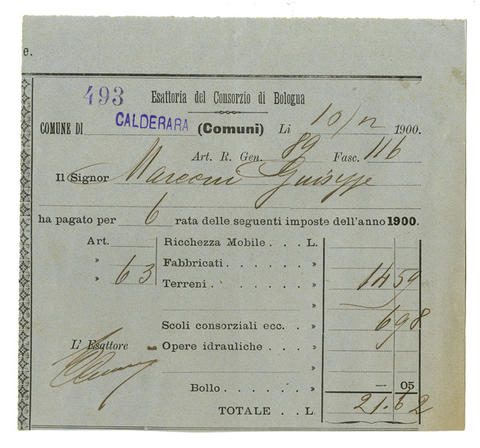 e.
493 Esattoria del Consorzio di Bologna
COMUNE DI CALDERARA (Comuni) Li 10/12 1900.
Art. R. Gen. 89 Fasc. 116
Il Signor Marconi Guiseppe
ha pagato per 6 rata delle seguenti imposte dell'anno 1900.
Art. Ricchezza Mobile . . . L.
» 63 Fabbricati . . . . . . »
Terreni . . . . . . . » 14 59
Scoli consorziali ecc. . » 6 98
L' Esattore Opere idrauliche . . . »
Bollo . . . . . » — 05
TOTALE . . L. 21.62